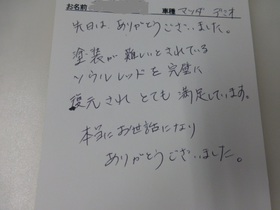 お名前 車種 マツダ デミオ
先日は ありがとうございました。
塗装が難しいとされている
ソウルレッドを完璧に
復元され とても満足しています。
本当にお世話になり
ありがとうございました。